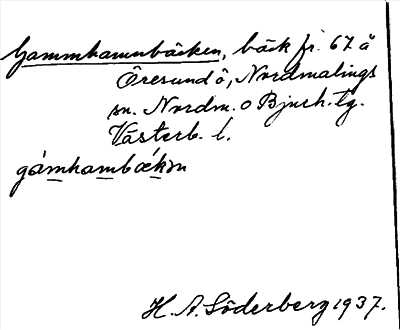 Gammhamnbäcken, bäck fr. 67 å
Öresund ö, Nordmalings
sn. Nordm. o Bjurh. tg.
Västerb. l.
gámhambækɔn
H. A. Söderberg 1937.